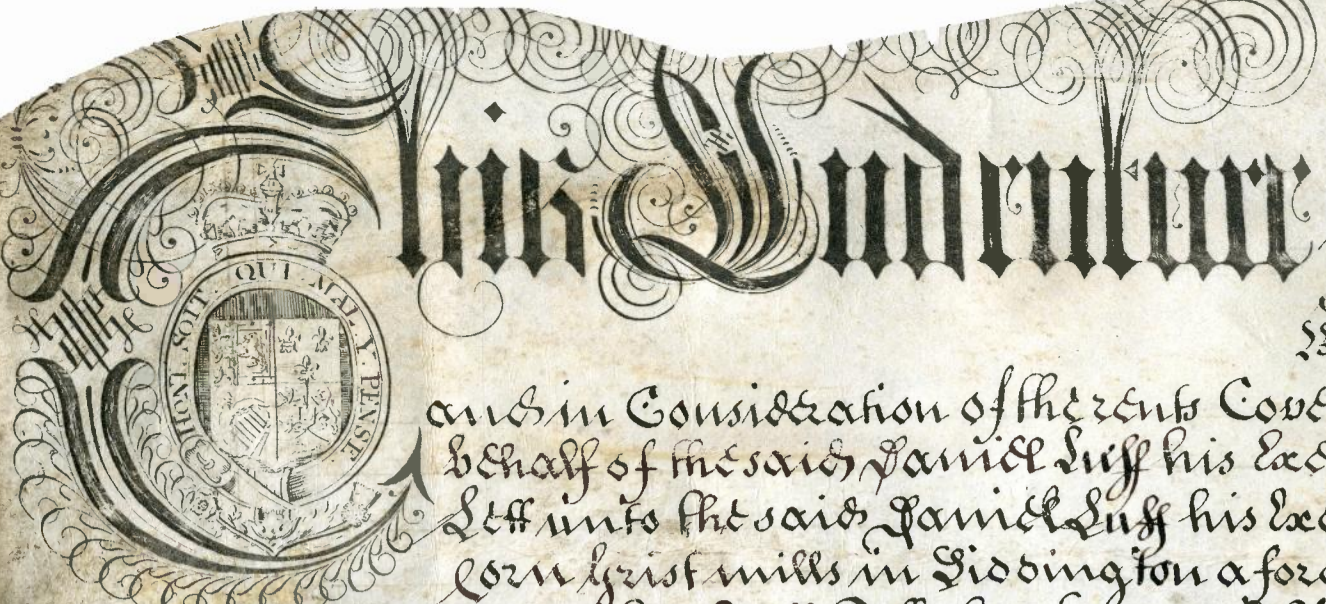 This Indenture
HONI SOIT QUI MAL Y PENSE
and in Consideration of the rents Cove
behalf of the said Daniel Luff his Exe
Lett unto the said Daniel Luff his Exe
Corn Grist mills in afor